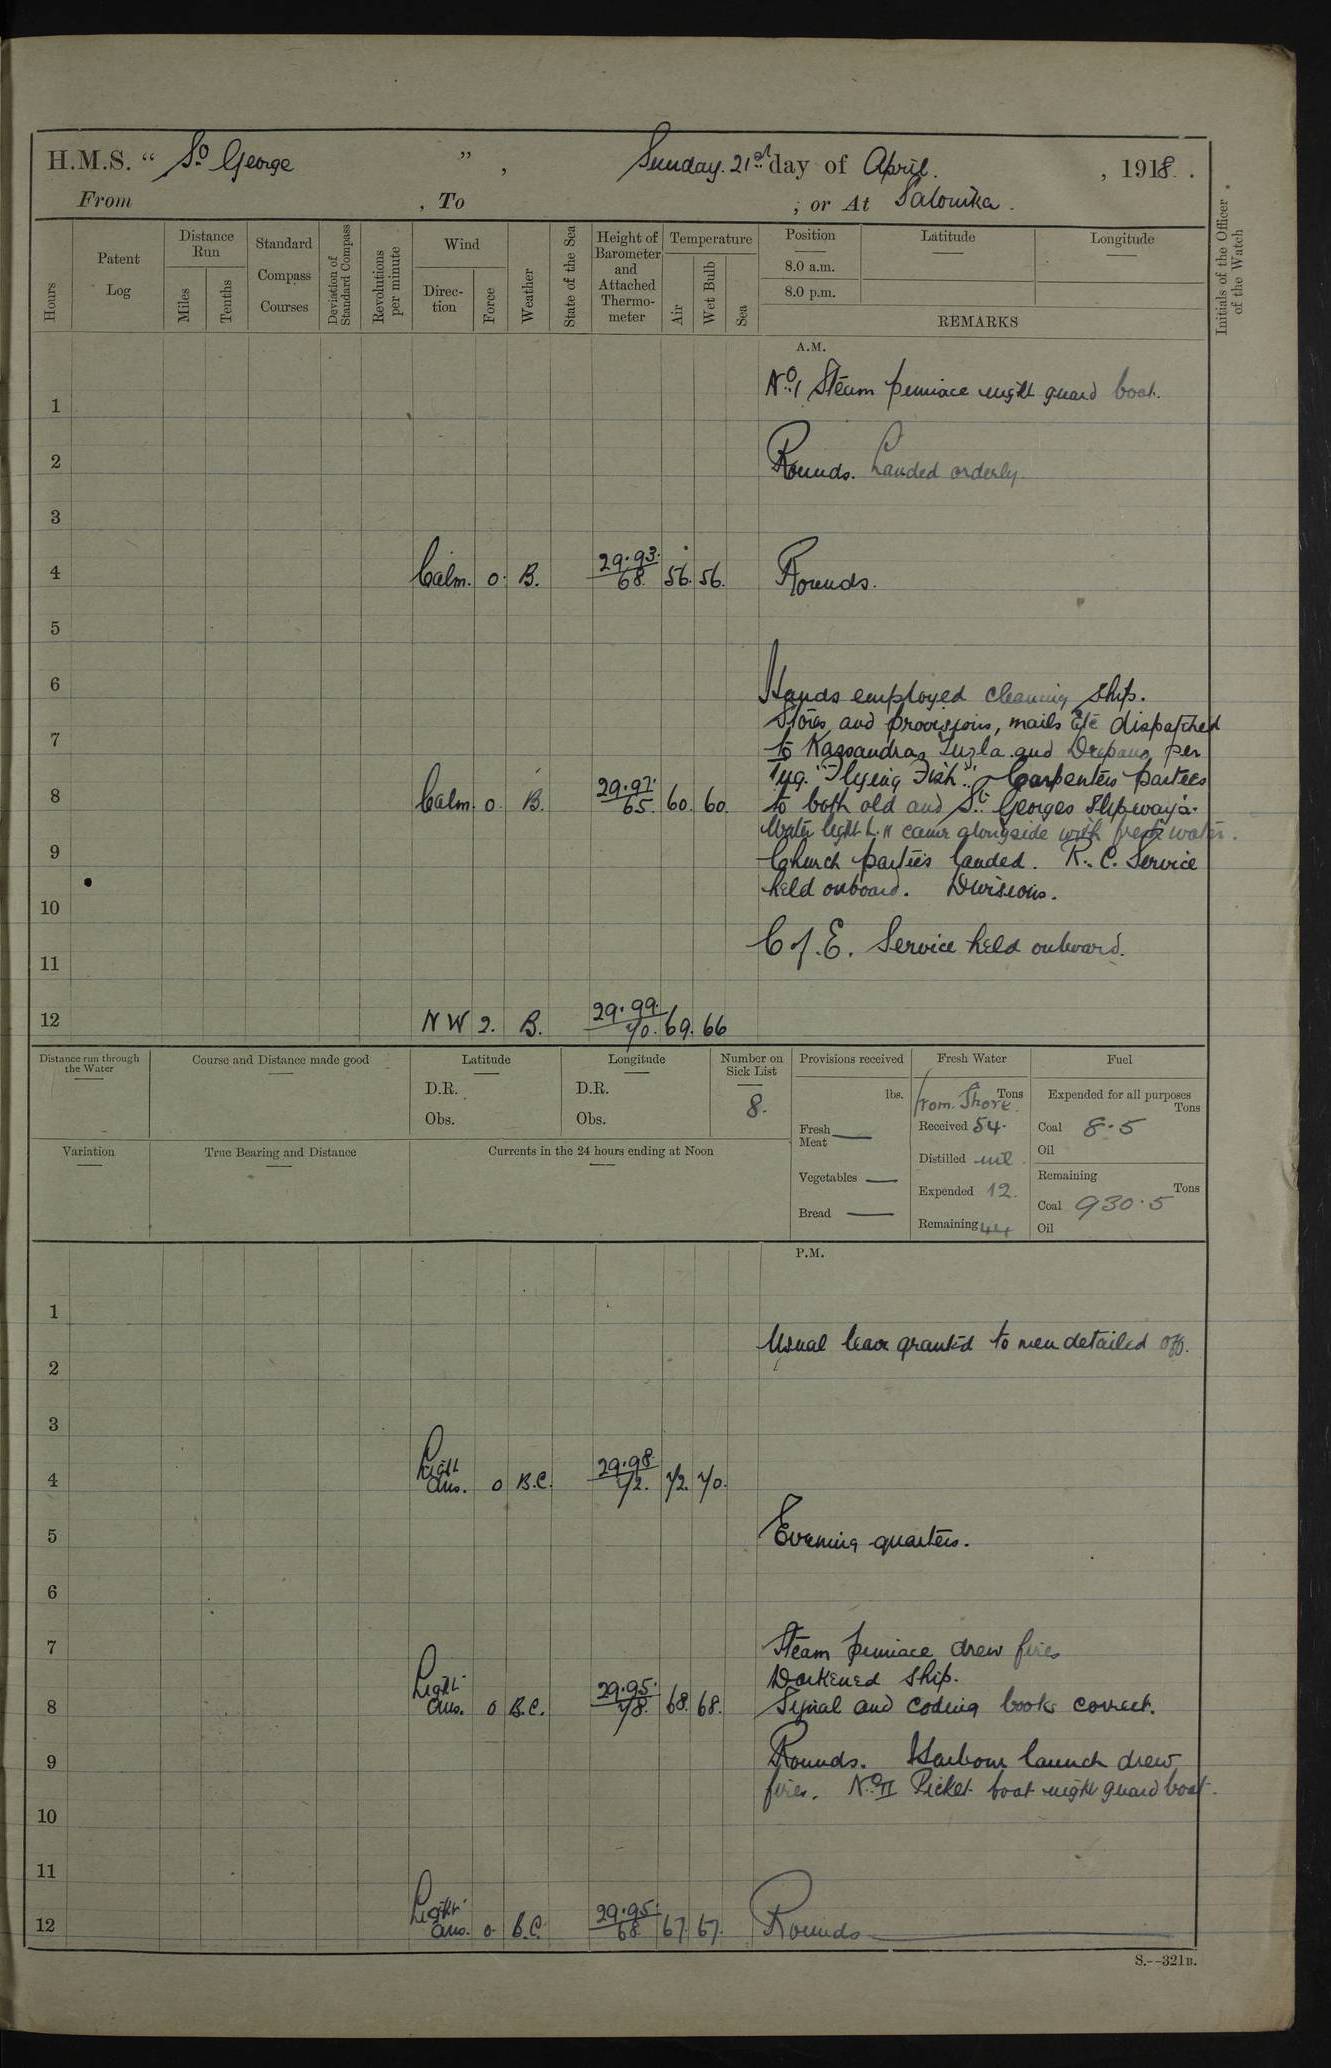 H.M.S. “ St George ” , Sunday. 21st day of April. , 1918. .
From , To ; or At Salonika.
Hours
Patent Log
Distance Run
Miles
Tenths
Standard Compass Courses
Deviation of Standard Compass
Revolutions per minute
Wind
Direction
Force
Weather
State of the Sea
Height of Barometer and Attached Thermometer
Temperature
Air
Wet Bulb
Sea
Position
8.0 a.m.
8.0 p.m.
Latitude
Longitude
REMARKS
Initials of the Officer of the Watch
A.M.
1 No. 1 Steam pinnace night guard boat.
2 Rounds. Landed orderly.
3
4 Calm. 0. B. 29.93. 68. 56. 56. Rounds.
5
6 Hands employed cleaning ship.
Stores, and provisions, mails Etc dispatched
7 to Kassandra, Tuzla and Drepano per
Tug. "Flying Fish". Carpenters parties
8 Calm. 0. B. 29.97. 65. 60. 60. to both old and St. Georges Slipways.
Water light L. II came alongside with fresh water.
9 Church parties landed. R. C. Service
held onboard. Divisions.
10
C of E. Service held onboard.
11
12 NW 2. B. 29.99. 70. 69. 66
Distance run through the Water
Course and Distance made good
Latitude
D.R.
Obs.
Longitude
D.R.
Obs.
Number on Sick List
8.
Provisions received
lbs.
Fresh Meat —
Vegetables —
Bread —
Fresh Water
Tons
from Shore.
Received 54.
Distilled nil
Expended 12.
Remaining
Fuel
Expended for all purposes
Tons
Coal 8.5
Oil
Remaining
Tons
Coal 930.5
Oil
Variation
True Bearing and Distance
Currents in the 24 hours ending at Noon
P.M.
1
Usual leave granted to men detailed off.
2
3
4 Light airs. 0 B.C. 29.98. 72. 72. 70.
5 Evening quarters.
6
7 Steam pinnace drew fires
Darkened ship.
8 Light airs. 0 B.C. 29.95. 78. 68. 68. Signal and coding books correct.
9 Rounds. Harbour launch drew
fires. No. II Picket boat night guard boat.
10
11
12 Light airs. 0. B.C. 29.95. 68. 67. 67. Rounds
S.--321B.